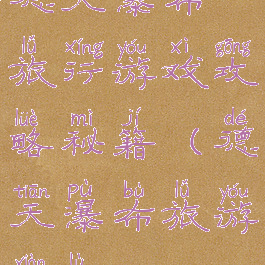 lǚ xíng yóu xì gōng
旅行游戏攻
lüè mì jí dé
略秘籍(德
tiān pù bù lǚ yóu
天瀑布旅游